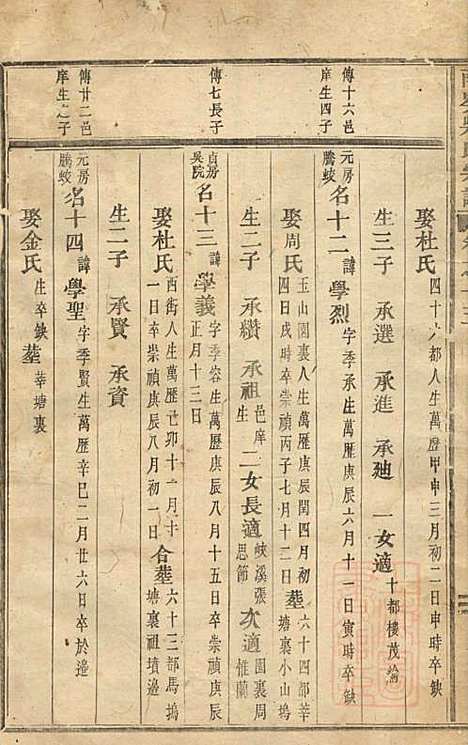 娶杜氏 四十六都人生萬歷甲申三月初二日申時卒缺
生三子 承選 承進 承廸 一女適 十都樓茂
傳十六邑庠生四子
元房騰蛟 名十二 諱學烈 字季承生萬歷庚辰六月十一日寅時卒缺
娶周氏 玉山園裏人生萬歷庚辰閏四月初四日戌時卒崇禎丙子七月十二日 葬 六十四都莘塘裏小山塢
生二子 承纘 承祖 邑庠生 二女長適 峽溪張思節 次適 園裏周惟蘭
傳七長子
貞房吳院 名十三 諱學義 字季容生萬歷庚辰八月十五日卒崇禎庚辰正月十三日
娶杜氏 西街人生萬歷己卯十一月廿一日卒崇禎庚辰八月初一日 合葬 六十三都馬塢塘裏祖墳邊
生二子 承賢 承資
傳廿二邑庠生之子
元房騰蛟 名十四 諱學聖 字季賢生萬歷辛巳二月廿六日卒於邊
娶金氏 生卒缺 葬 莘塘裏